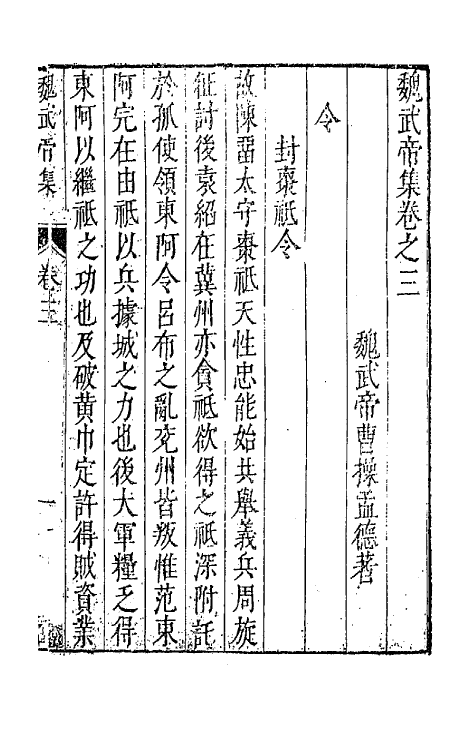 魏武帝集卷之三
魏武帝曹操孟德著
令
封棗祗令
故陳留太守棗祗天性忠能始共舉義兵周旋
征討後袁紹在冀州亦貪祗欲得之祗深附託
於孤使領東阿令呂布之亂兖州皆叛惟范東
阿完在由祗以兵據城之力也後大軍糧乏得
東阿以繼祗之功也及破黄巾定許得賊資業
魏武帝集
卷三
一